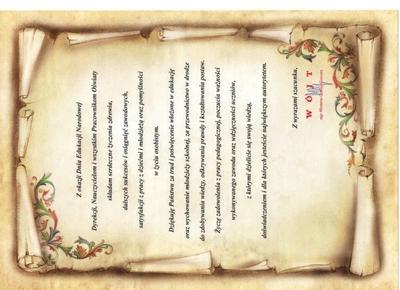 Z okazji Dnia Edukacji Narodowej
Dyrekcji, Nauczycielom i wszystkim Pracownikom Oświaty
składam serdeczne życzenia zdrowia,
dalszych sukcesów i osiągnięć zawodowych,
satysfakcji z pracy z dziećmi i młodzieżą oraz pomyślności
w życiu osobistym.
Dziękuję Państwu za trud i poświęcenie włożone w edukację
oraz wychowanie młodzieży szkolnej, za przewodnictwo w drodze
do zdobywania wiedzy, odkrywania prawdy i kształtowania postaw.
Życzę zadowolenia z pracy pedagogicznej, poczucia ważności
wykonywanego zawodu oraz wdzięczności uczniów,
z którymi dzielicie się swoją wiedzą,
doświadczeniem i dla których jesteście największym autorytetem.
Z wyrazami szacunku,
WÓJT